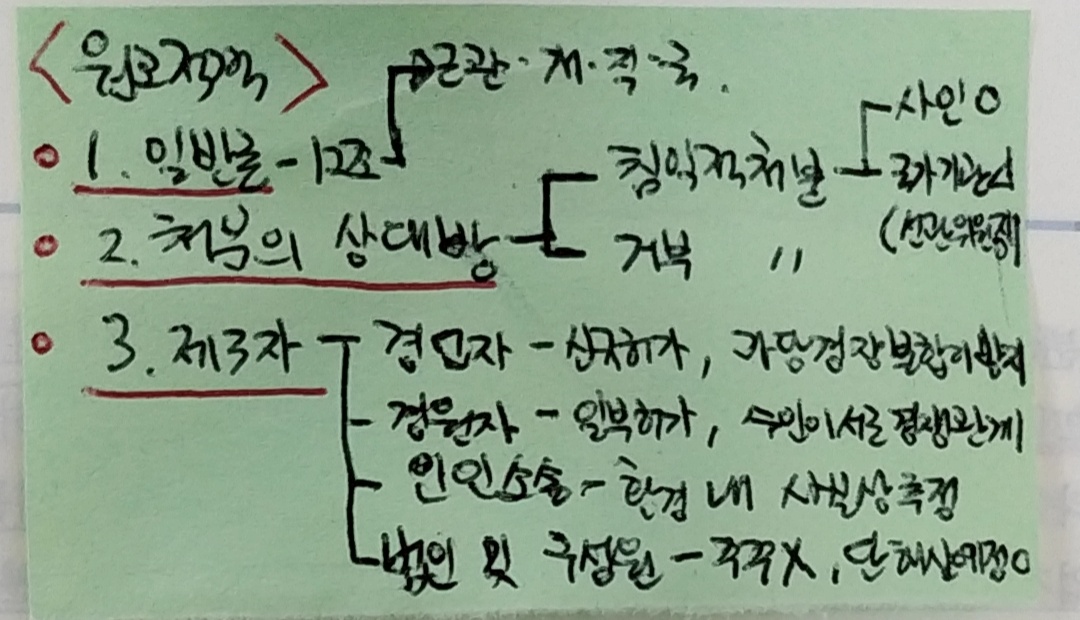 <원고적격>
근관·개·직·국.
1. 일반론 - 12조
사인O
침익적처분
국가기관
2. 처분의 상대방
(선관위원장)
거부 "
3. 제3자
경업자 - 신규허가, 과당경쟁불합리방지
경원자 - 일부허가, 수인이서로경쟁관계
인인소송 - 환경 내 사실상추정
법인 및 구성원 - 직직X, 단 해산예정O